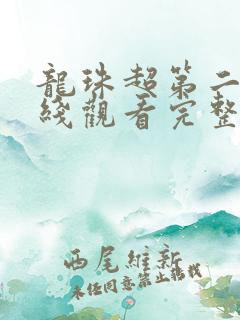 龍珠超第二
綫觀看完整
西尾維新
未經同意禁止轉載